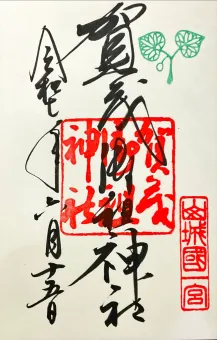 賀茂御祖神社
令和七年六月十五日
賀茂御祖神社
山城國一宮